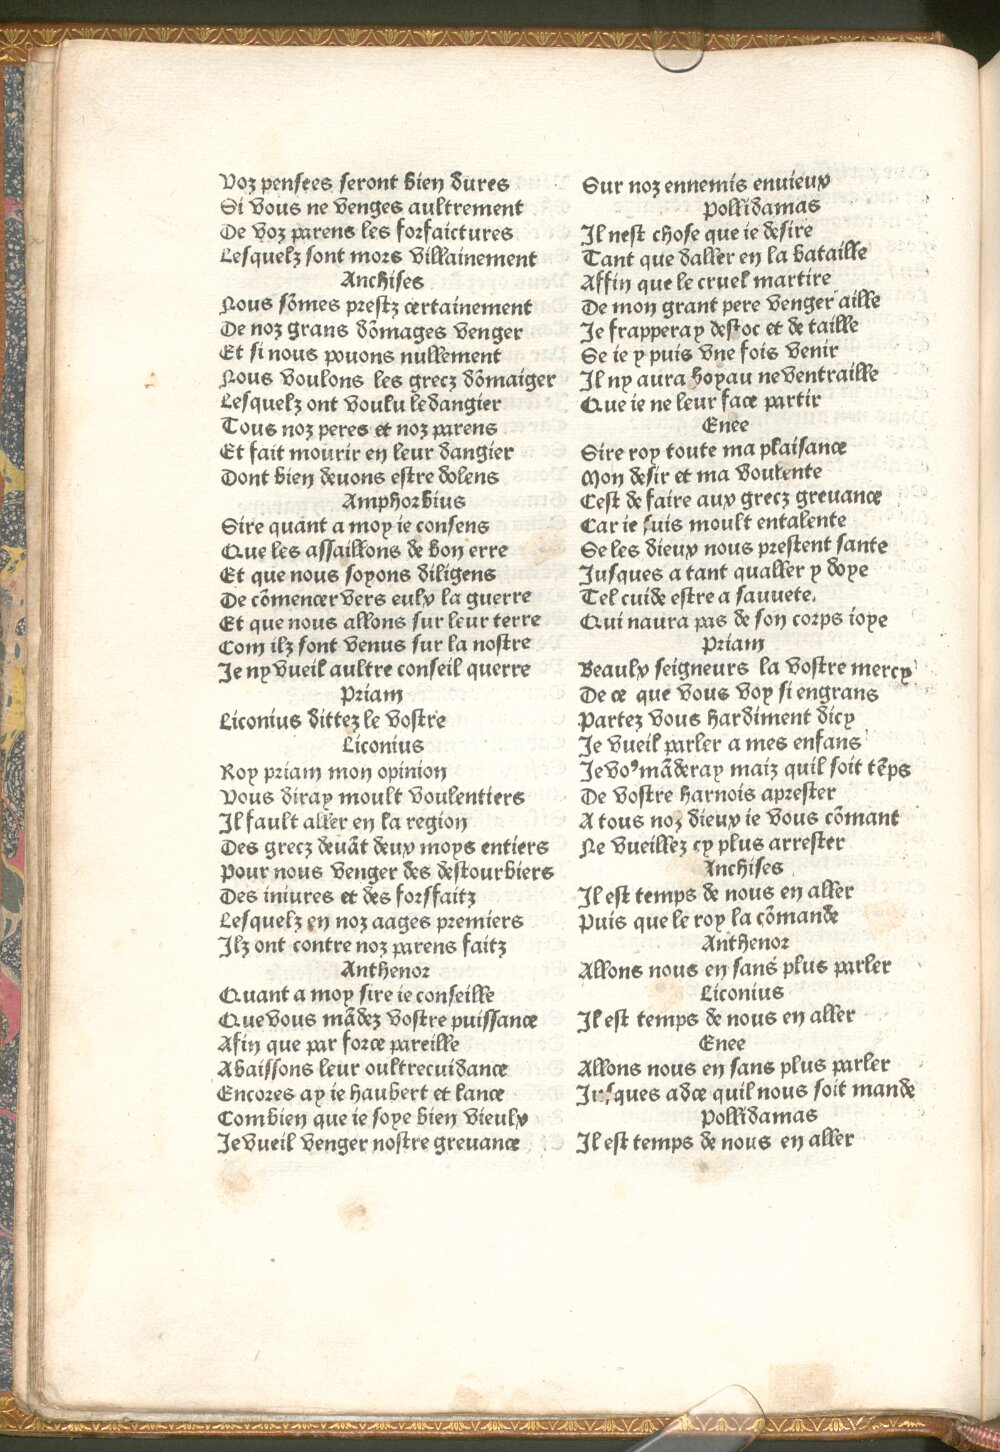 Voz pensees seront bien dures
Si vous ne venges aultrement
De voz parens les forfaictures
Lesquelz sont mors villainement
Anchises
Nous sõmes prestz certainement
De noz grans dõmages venger
Et si nous pouons nullement
Nous voulons les grecz dõmaiger
Lesquelz ont voulu le dangier
Tous noz peres et noz parens
Et fait mourir en leur dangier
Dont bien deuons estre dolens
Amphorbius
Sire quãnt a moy ie consens
Que les assaillons de bon erre
Et que nous soyons diligens
De cõmencer vers eulx la guerre
Et que nous allons sur leur terre
Com ilz sont venus sur la nostre
Je ny vueil aultre conseil querre
Priam
Liconius dittez le vostre
Liconius
Roy priam mon opinion
Vous diray moult voulentiers
Il fault aller en la region
Des grecz deuãt deux moys entiers
Pour nous venger des destourbiers
Des iniures et des forsfaitz
Lesquelz en noz aages premiers
Ilz ont contre noz parens faitz
Anthenor
Quant a moy sire ie conseille
Que vous mãdez vostre puissance
Afin que par force pareille
Abaissons leur oultrecuidance
Encores ay ie haubert et lance
Combien que ie soye bien vieulx
Je vueil venger nostre greuance
Sur noz ennemis enuieux
Pollidamas
Il nest chose que ie desire
Tant que daller en la bataille
Affin que le cruel martire
De mon grant pere venger aille
Je frapperay destoc et de taille
Se ie y puis vne fois venir
Il ny aura boyau ne ventraille
Que ie ne leur face partir
Enee
Sire roy toute ma plaisance
Mon desir et ma voulente
Cest de faire aux grecz greuance
Car ie suis moult entalente
Se les dieux nous prestent sante
Jusques a tant qualler y doye
Tel cuide estre a sauuete.
Qui naura pas de son corps ioye
Priam
Beaulx seigneurs la vostre mercy
De ce que vous voy si engrans
Partez vous hardiment dicy
Je vueil parler a mes enfans
Je voꝰ mãderay maiz quil soit tẽps
De vostre harnois aprester
A tous noz dieux ie vous cõmant
Ne vueillez cy plus arrester
Anchises
Il est temps de nous en aller
Puis que le roy la cõmande
Anthenor
Allons nous en sans plus parler
Liconius
Il est temps de nous en aller
Enee
Allons nous en sans plus parler
Jusques adce quil nous soit mande
Pollidamas
Il est temps de nous en aller